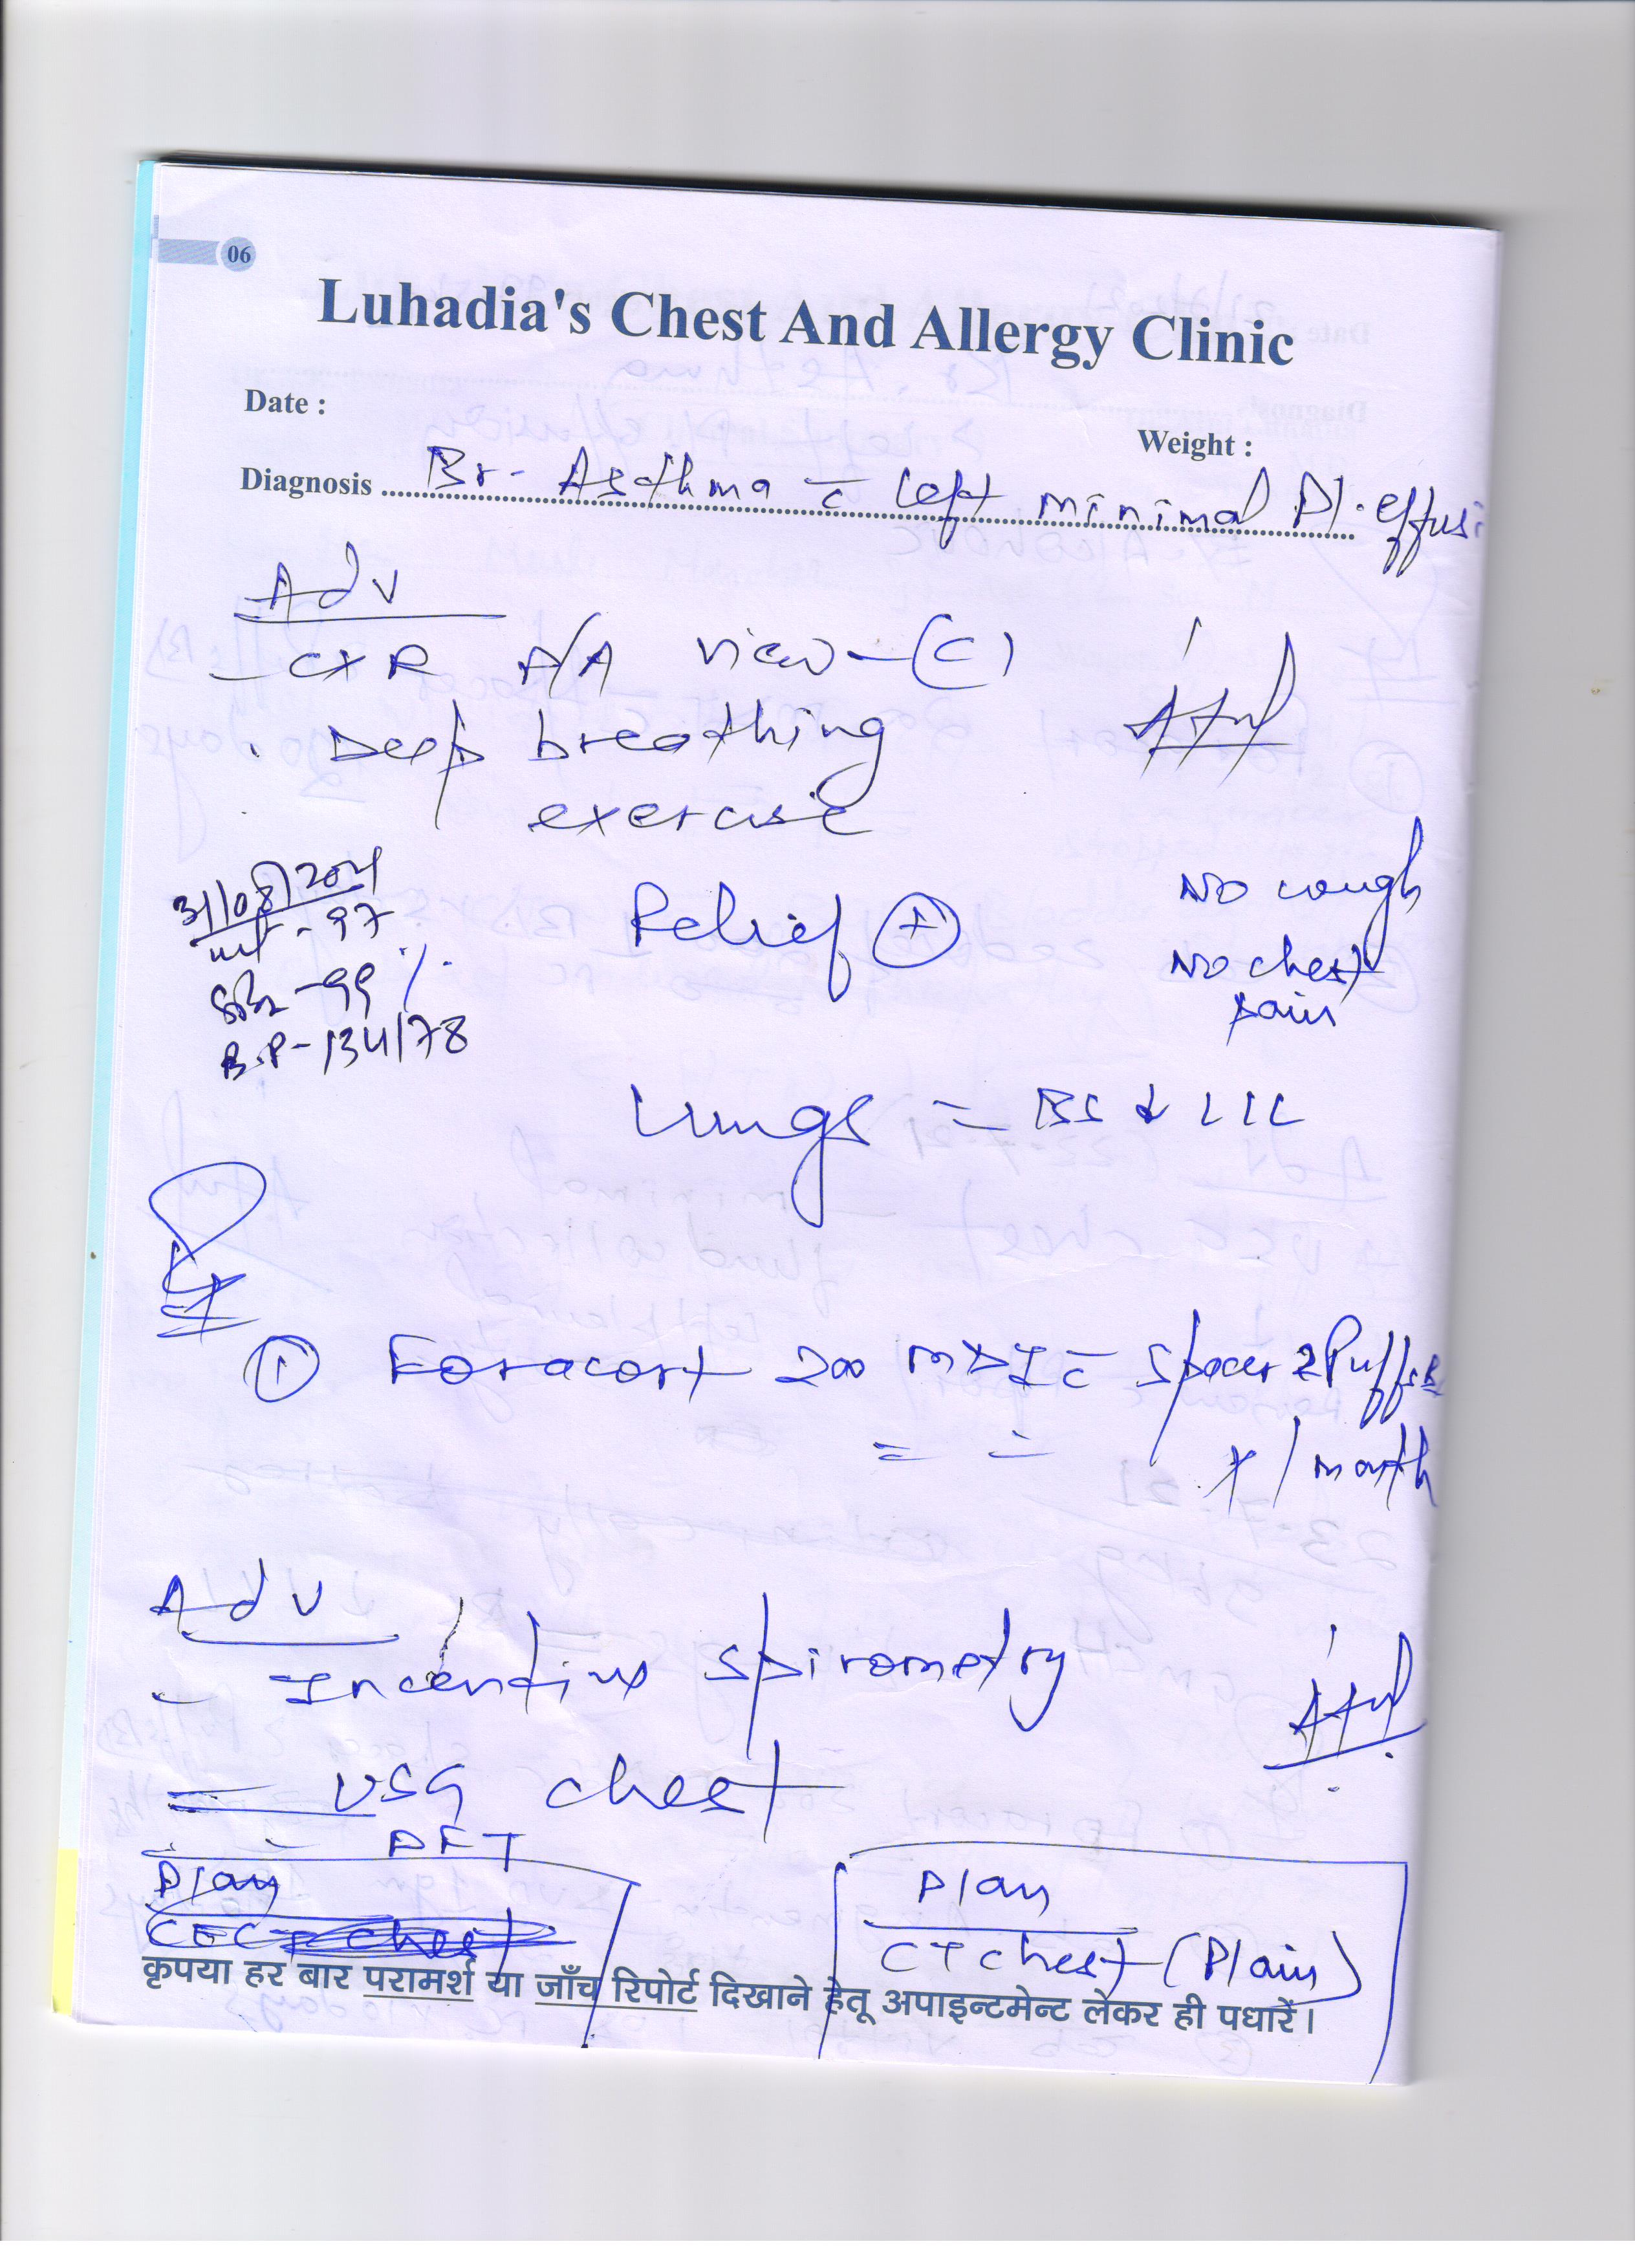 06
Luhadia's Chest And Allergy Clinic
Date :
Weight :
Diagnosis Br- Asathma c̄ left minimal Pl. effusi
Adv
- CXR P/A view - (C)
. Deep breathing
exercise
31/08/2021
wt - 97
SPO2 - 99 %.
B.P - 134/78
Relief (+)
No cough
No chest
pain
Lungs = BS ↓ LIL
① Foracort 200 MDI c̄ spacer 2 Puffs B
x 1 month
Adv
- Incentive spirometry
= USG chest
- PFT
Plan
CECT chest
Plan
CT chest (Plain)
कृपया हर बार परामर्श या जाँच रिपोर्ट दिखाने हेतू अपाइन्टमेन्ट लेकर ही पधारें।